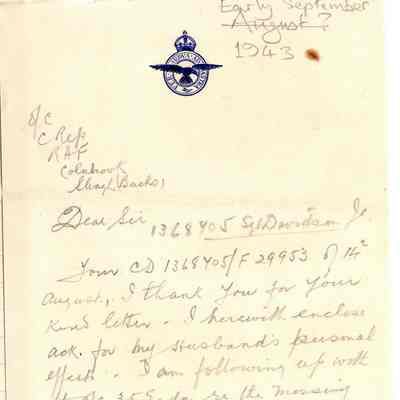 Early September
August?
1943
O/C
C Rep
RAF
Colnbrook
Slough, Bucks,
Dear Sir
1368405 Sgt Davidson J.
Your CD 1368405/F 29953 of 14th
August, I thank you for your
kind letter. I herewith enclose
ack. for my Husband's personal
effects. I am following up with
re the missing